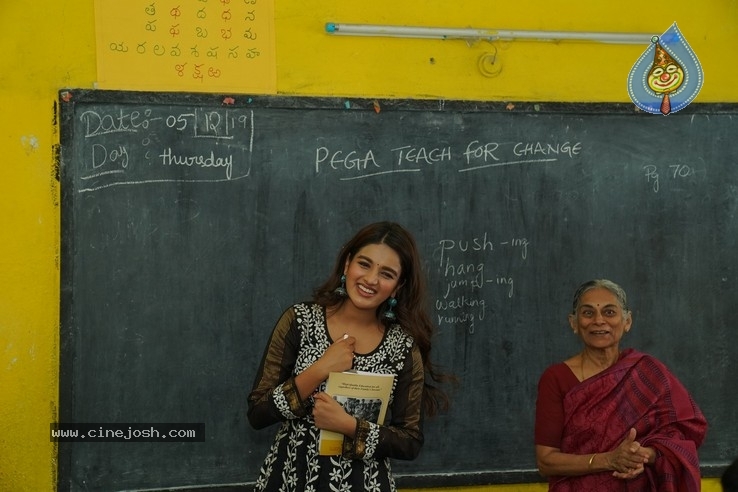 య ర ల వ శ ష స హ
ళ క్ష ఱ
Date:- 05/12/19
Day : thursday
PEGA TEACH FOR CHANGE
Pg 70
push -ing
hang
jump -ing
walking
running
www.cinejosh.com